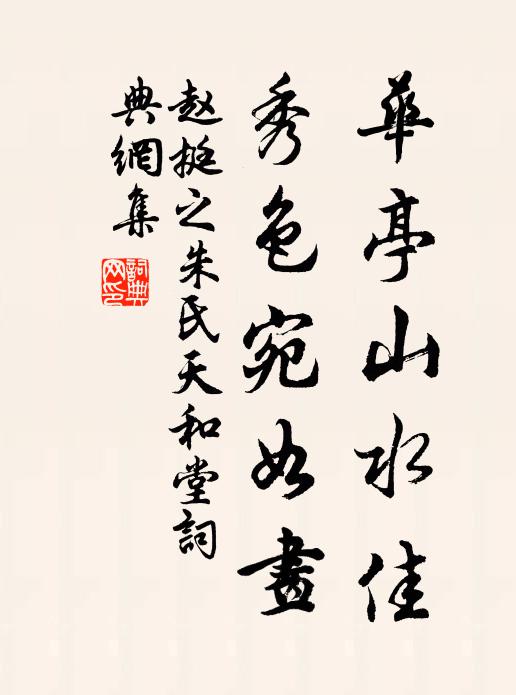 華亭山水佳
秀色宛如畫
赵挺之朱氏天和堂詞
典網集
詞典
网印